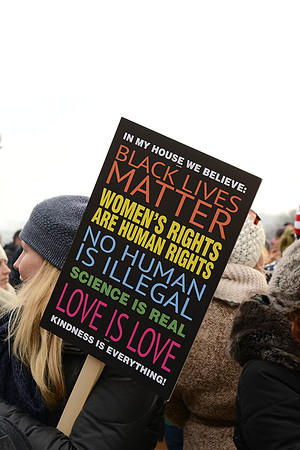 IN MY HOUSE WE BELIEVE:
BLACK LIVES
MATTER
WOMEN'S RIGHTS
ARE HUMAN RIGHTS
NO HUMAN
IS ILLEGAL
SCIENCE IS REAL
LOVE IS LOVE
KINDNESS IS EVERYTHING!